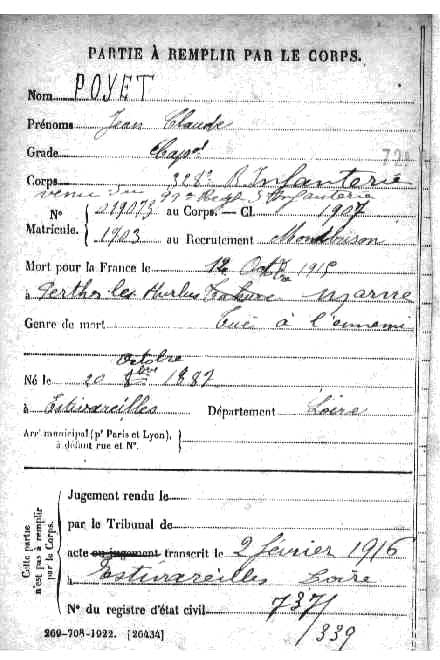 PARTIE À REMPLIR PAR LE CORPS.
Nom POYET
Prénoms Jean Claude
Grade Capal
Corps 328e R. Infanterie
venu du 99e Regt d'Infanterie
N° Matricule. 019073 au Corps. — Cl. 1907
1903 au Recrutement Montbrison
Mort pour la France le Octbre 1915
à Perthes les Hurlus Tahure Marne
Genre de mort Tué à l'ennemi
octobre
Né le 20 8bre 1887
à Estivareilles Département Loire
Arrt municipal (pr Paris et Lyon), à défaut rue et N°.
Cette partie n'est pas à remplir par le Corps.
Jugement rendu le
par le Tribunal de
acte ou jugement transcrit le 2 février 1916
à Estivareilles Loire
N° du registre d'état civil 737/
/339
269-708-1922. [26434]